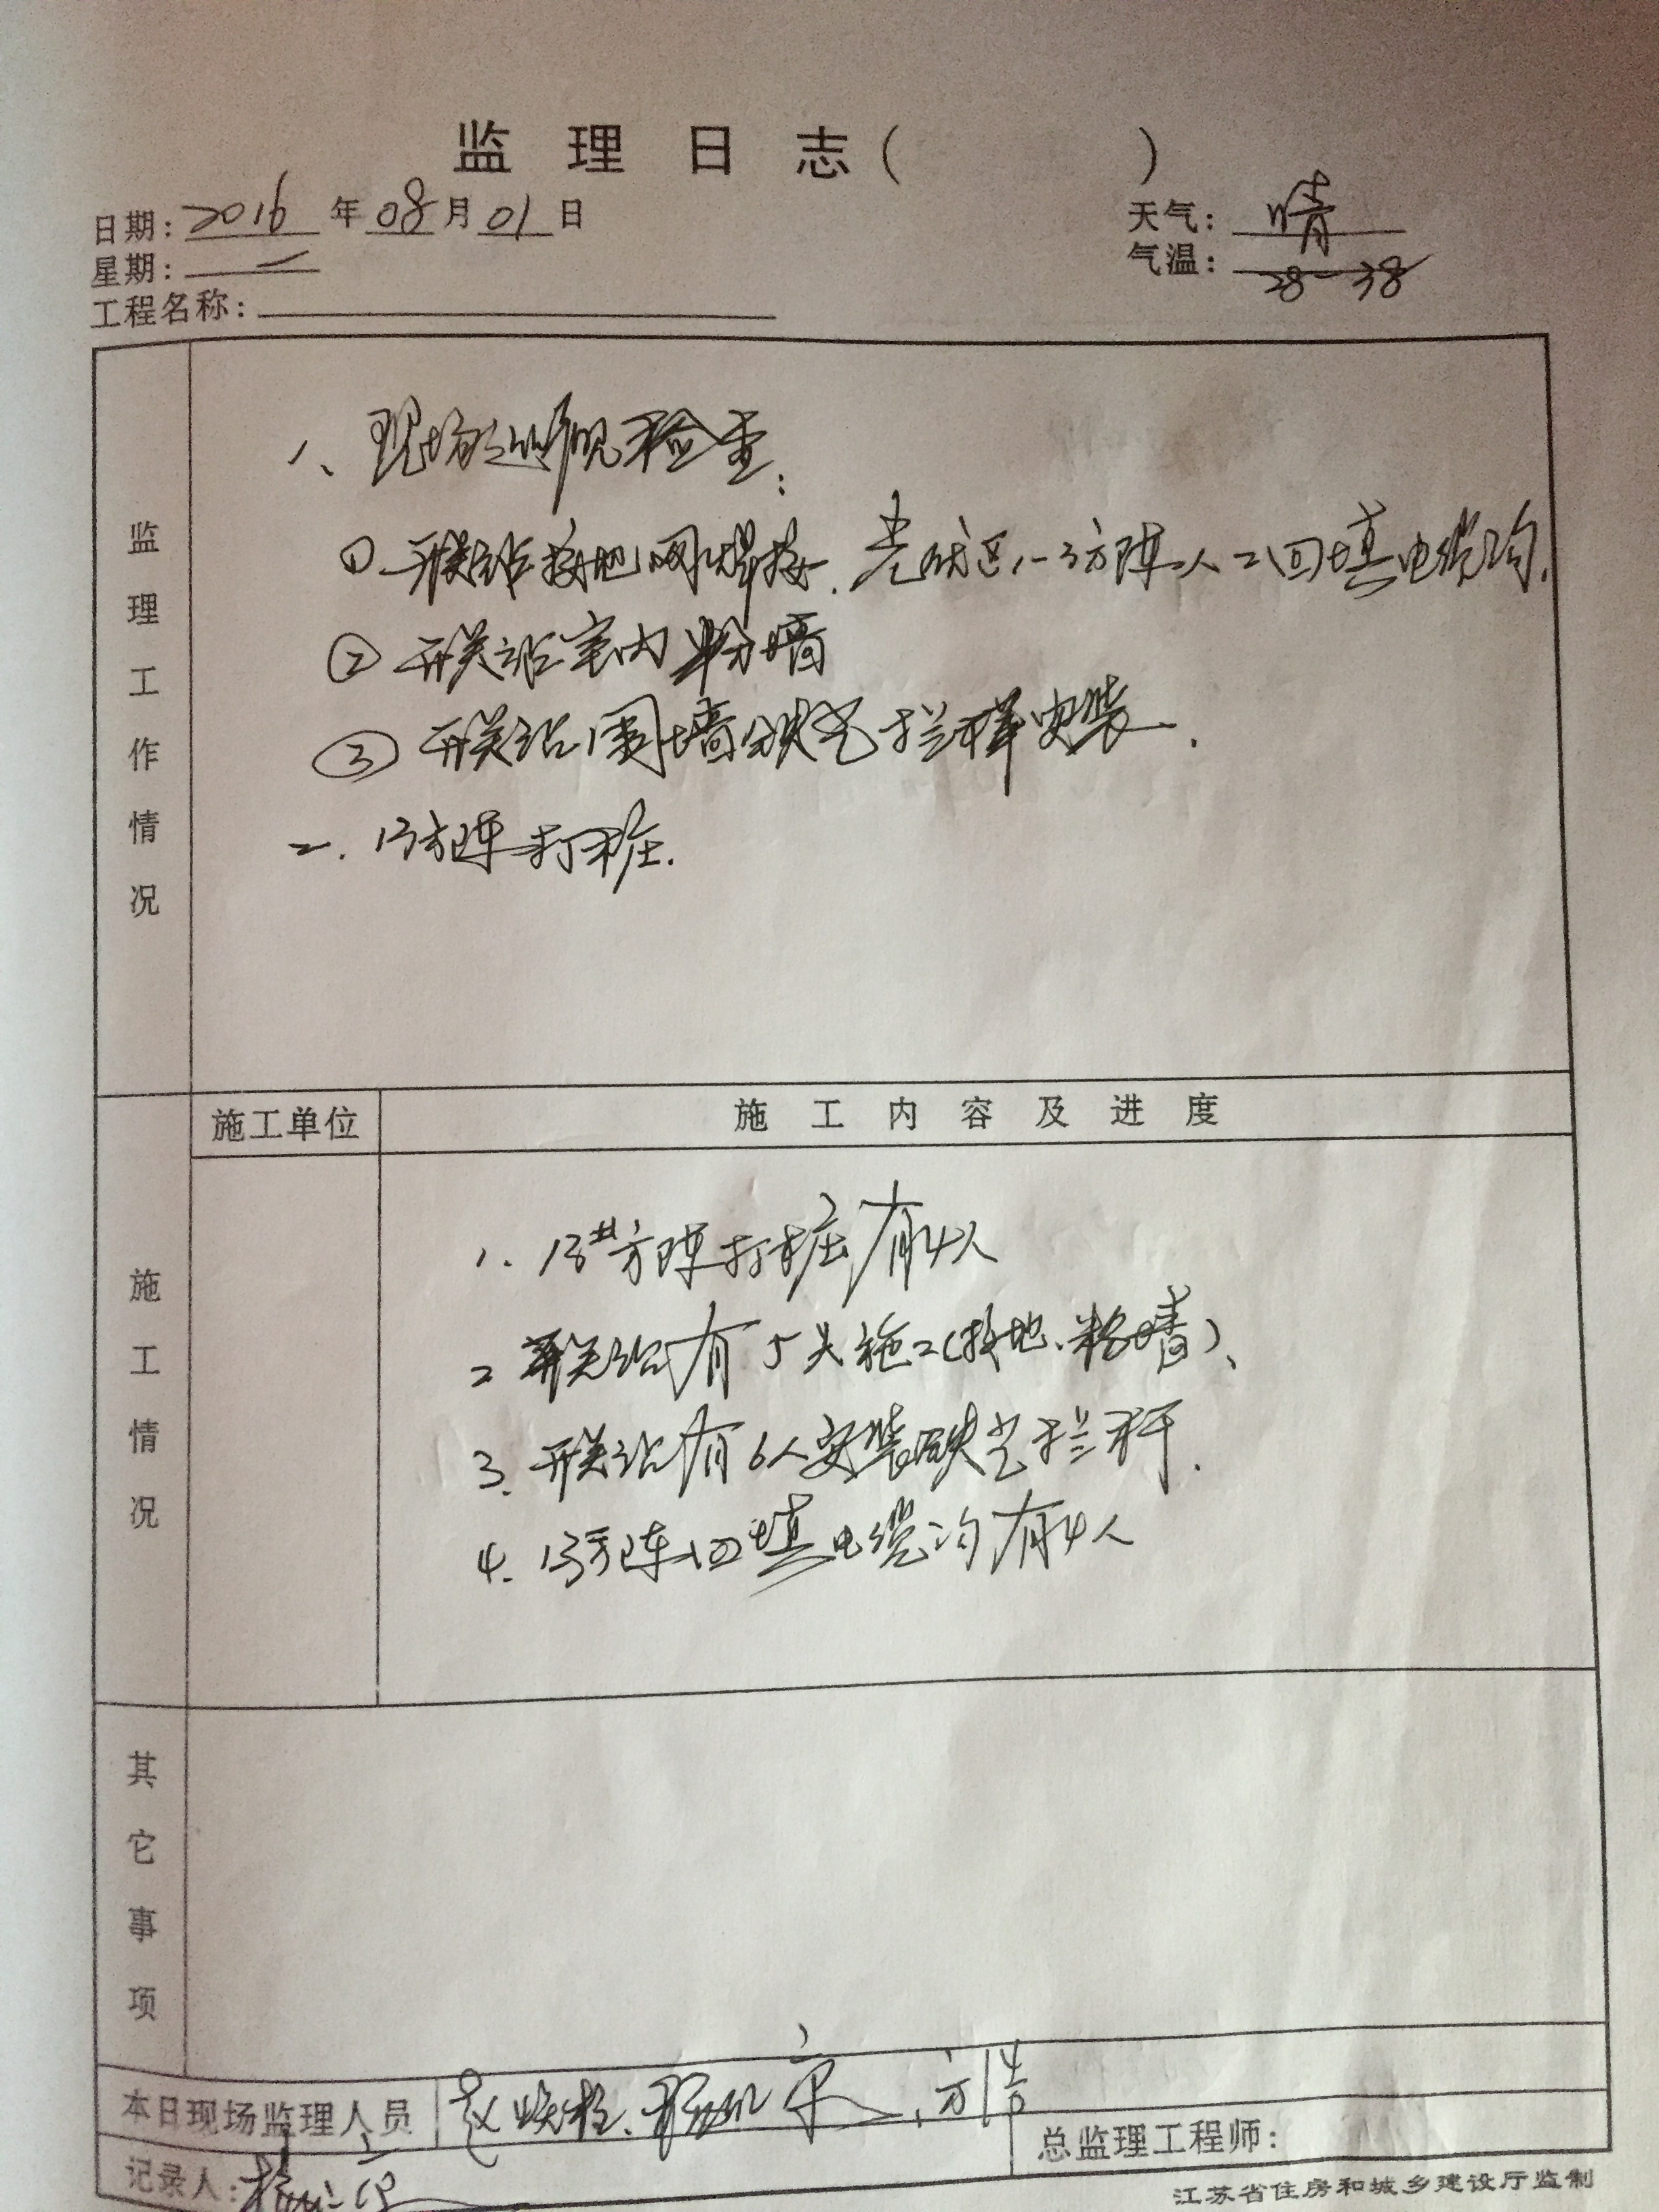 监理日志(    )
日期:2016年08月01日 天气:晴
星期:一 气温:28-38
工程名称:
监理工作情况
一、现场巡视检查:
① 开关站接地网焊接. 光伏区1-3方阵人工回填电缆沟.
② 开关站室内粉墙
③ 开关站围墙铁艺拦杆安装.
二. 13方阵打桩.
施工单位 施工内容及进度
施工情况
1. 13#方阵打桩有4人
2 开关站有5人施工(接地、粉墙)、
3. 开关站有6人安装铁艺拦杆.
4. 13方阵回填电缆沟有4人
其它事项
本日现场监理人员
总监理工程师:
记录人:
江苏省住房和城乡建设厅监制